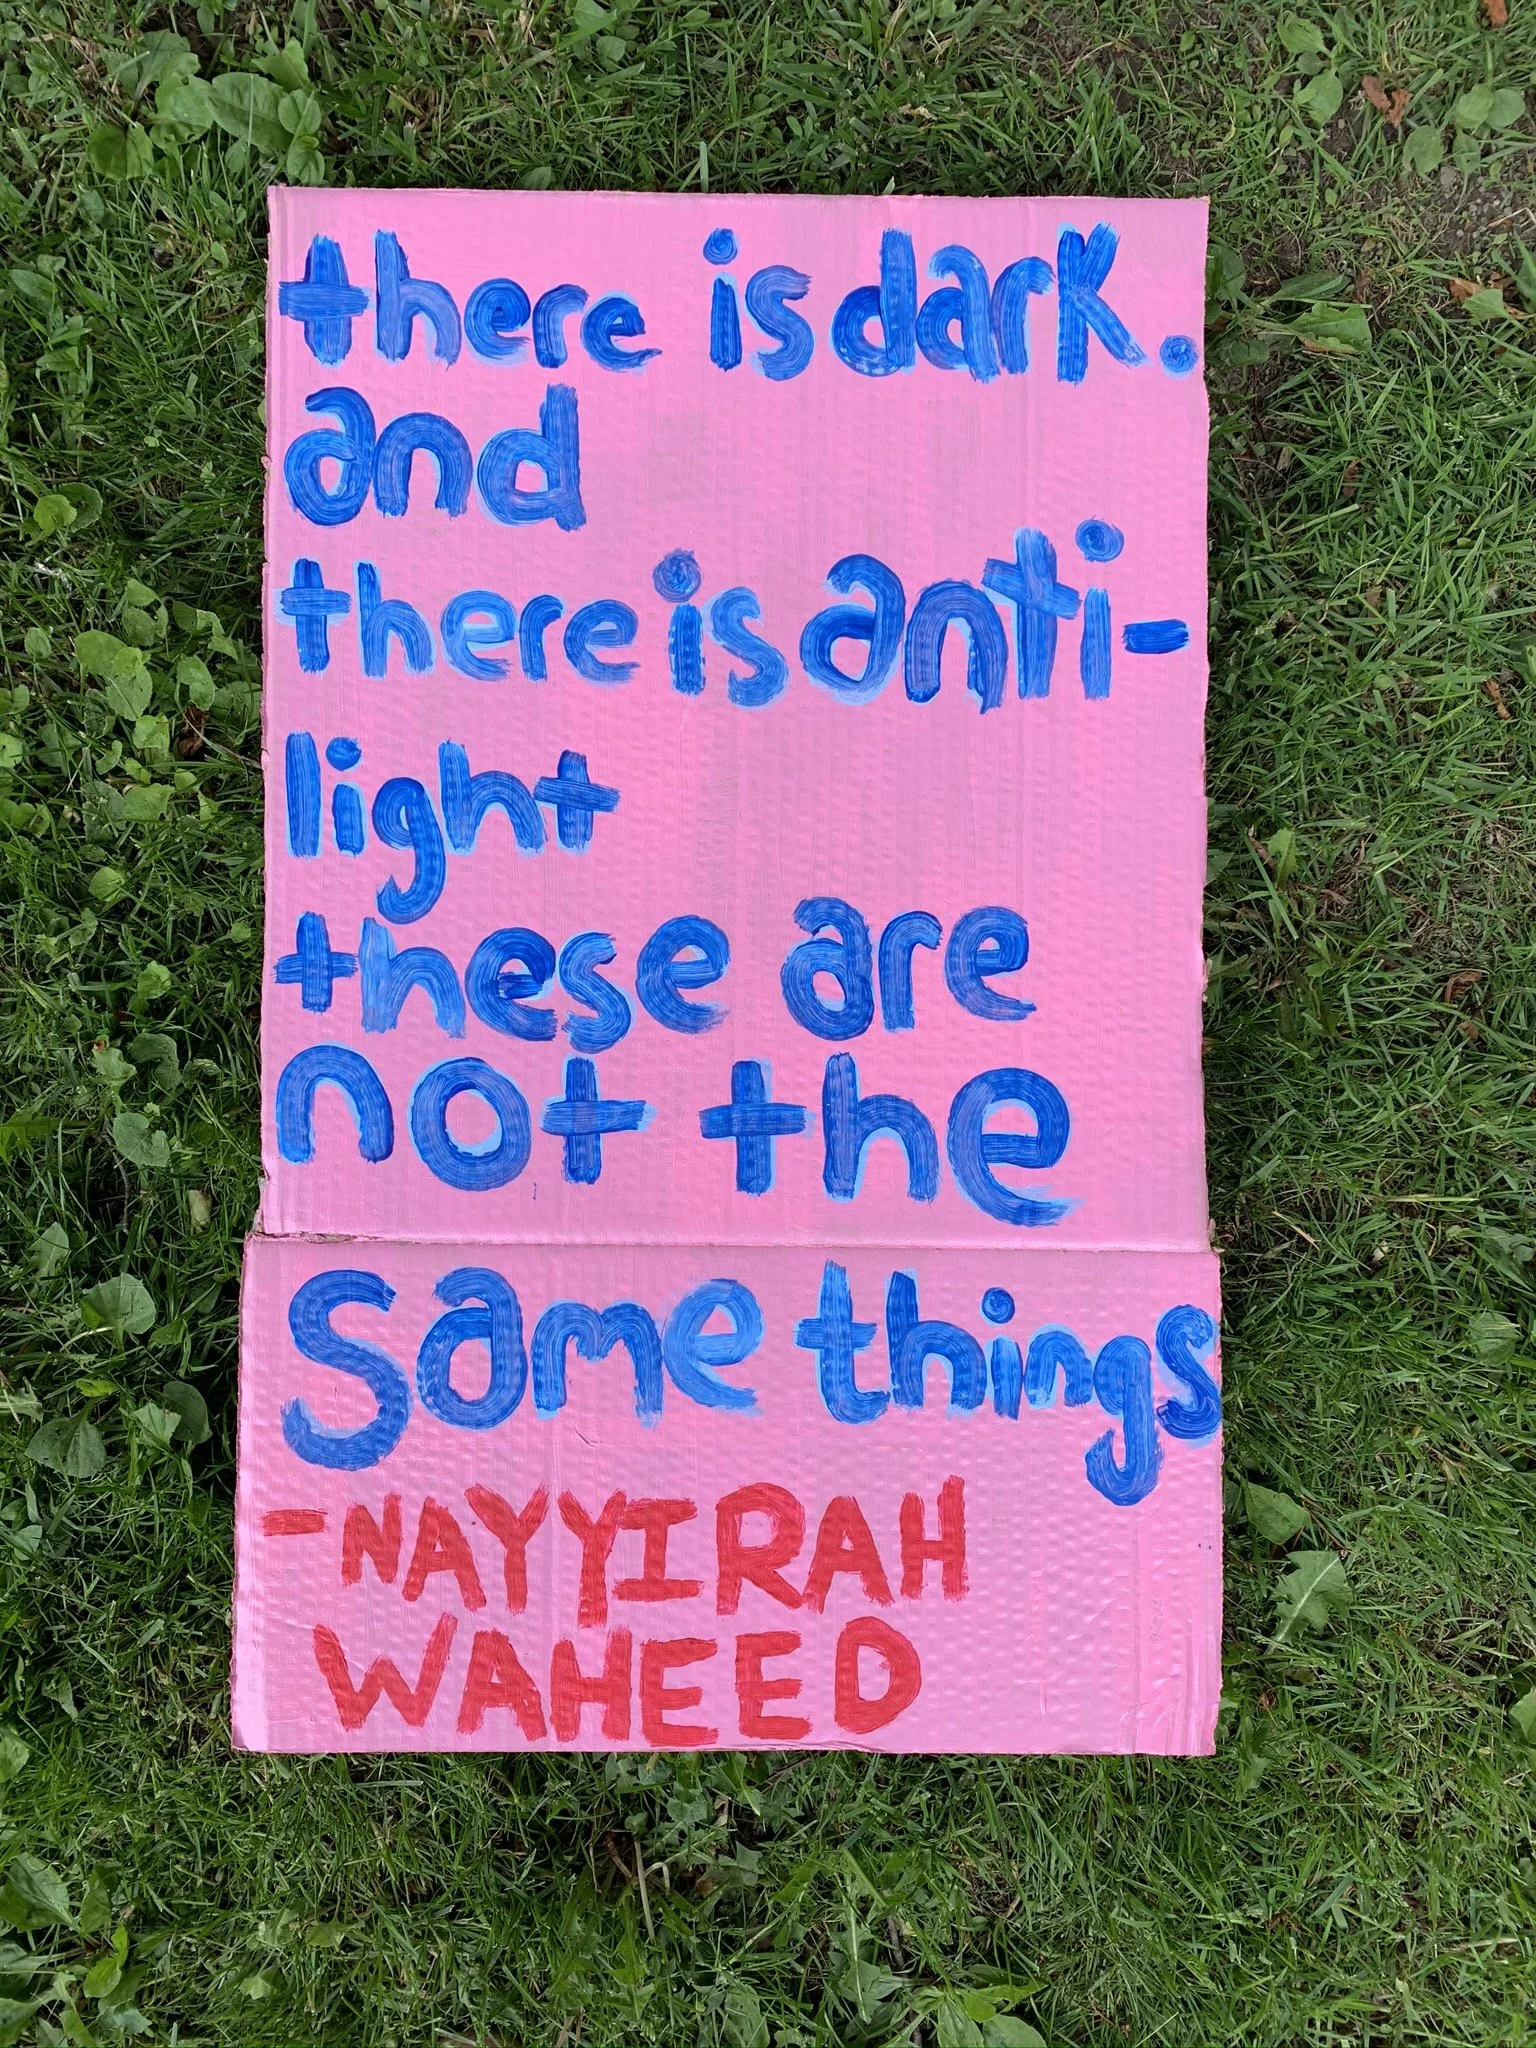 there is dark.
and
there is anti-
light
these are
not the
Same things
-NAYYIRAH
WAHEED